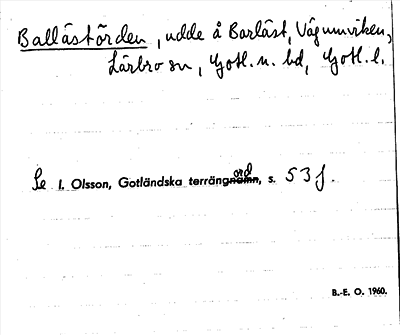 Ballåstörden, udde å Barläst, Vågumviken,
Lärbro sn, Gotl. n. hd, Gotl. l.
Se I. Olsson, Gotländska terrängord, s. 53 f.
B.-E. O. 1960.